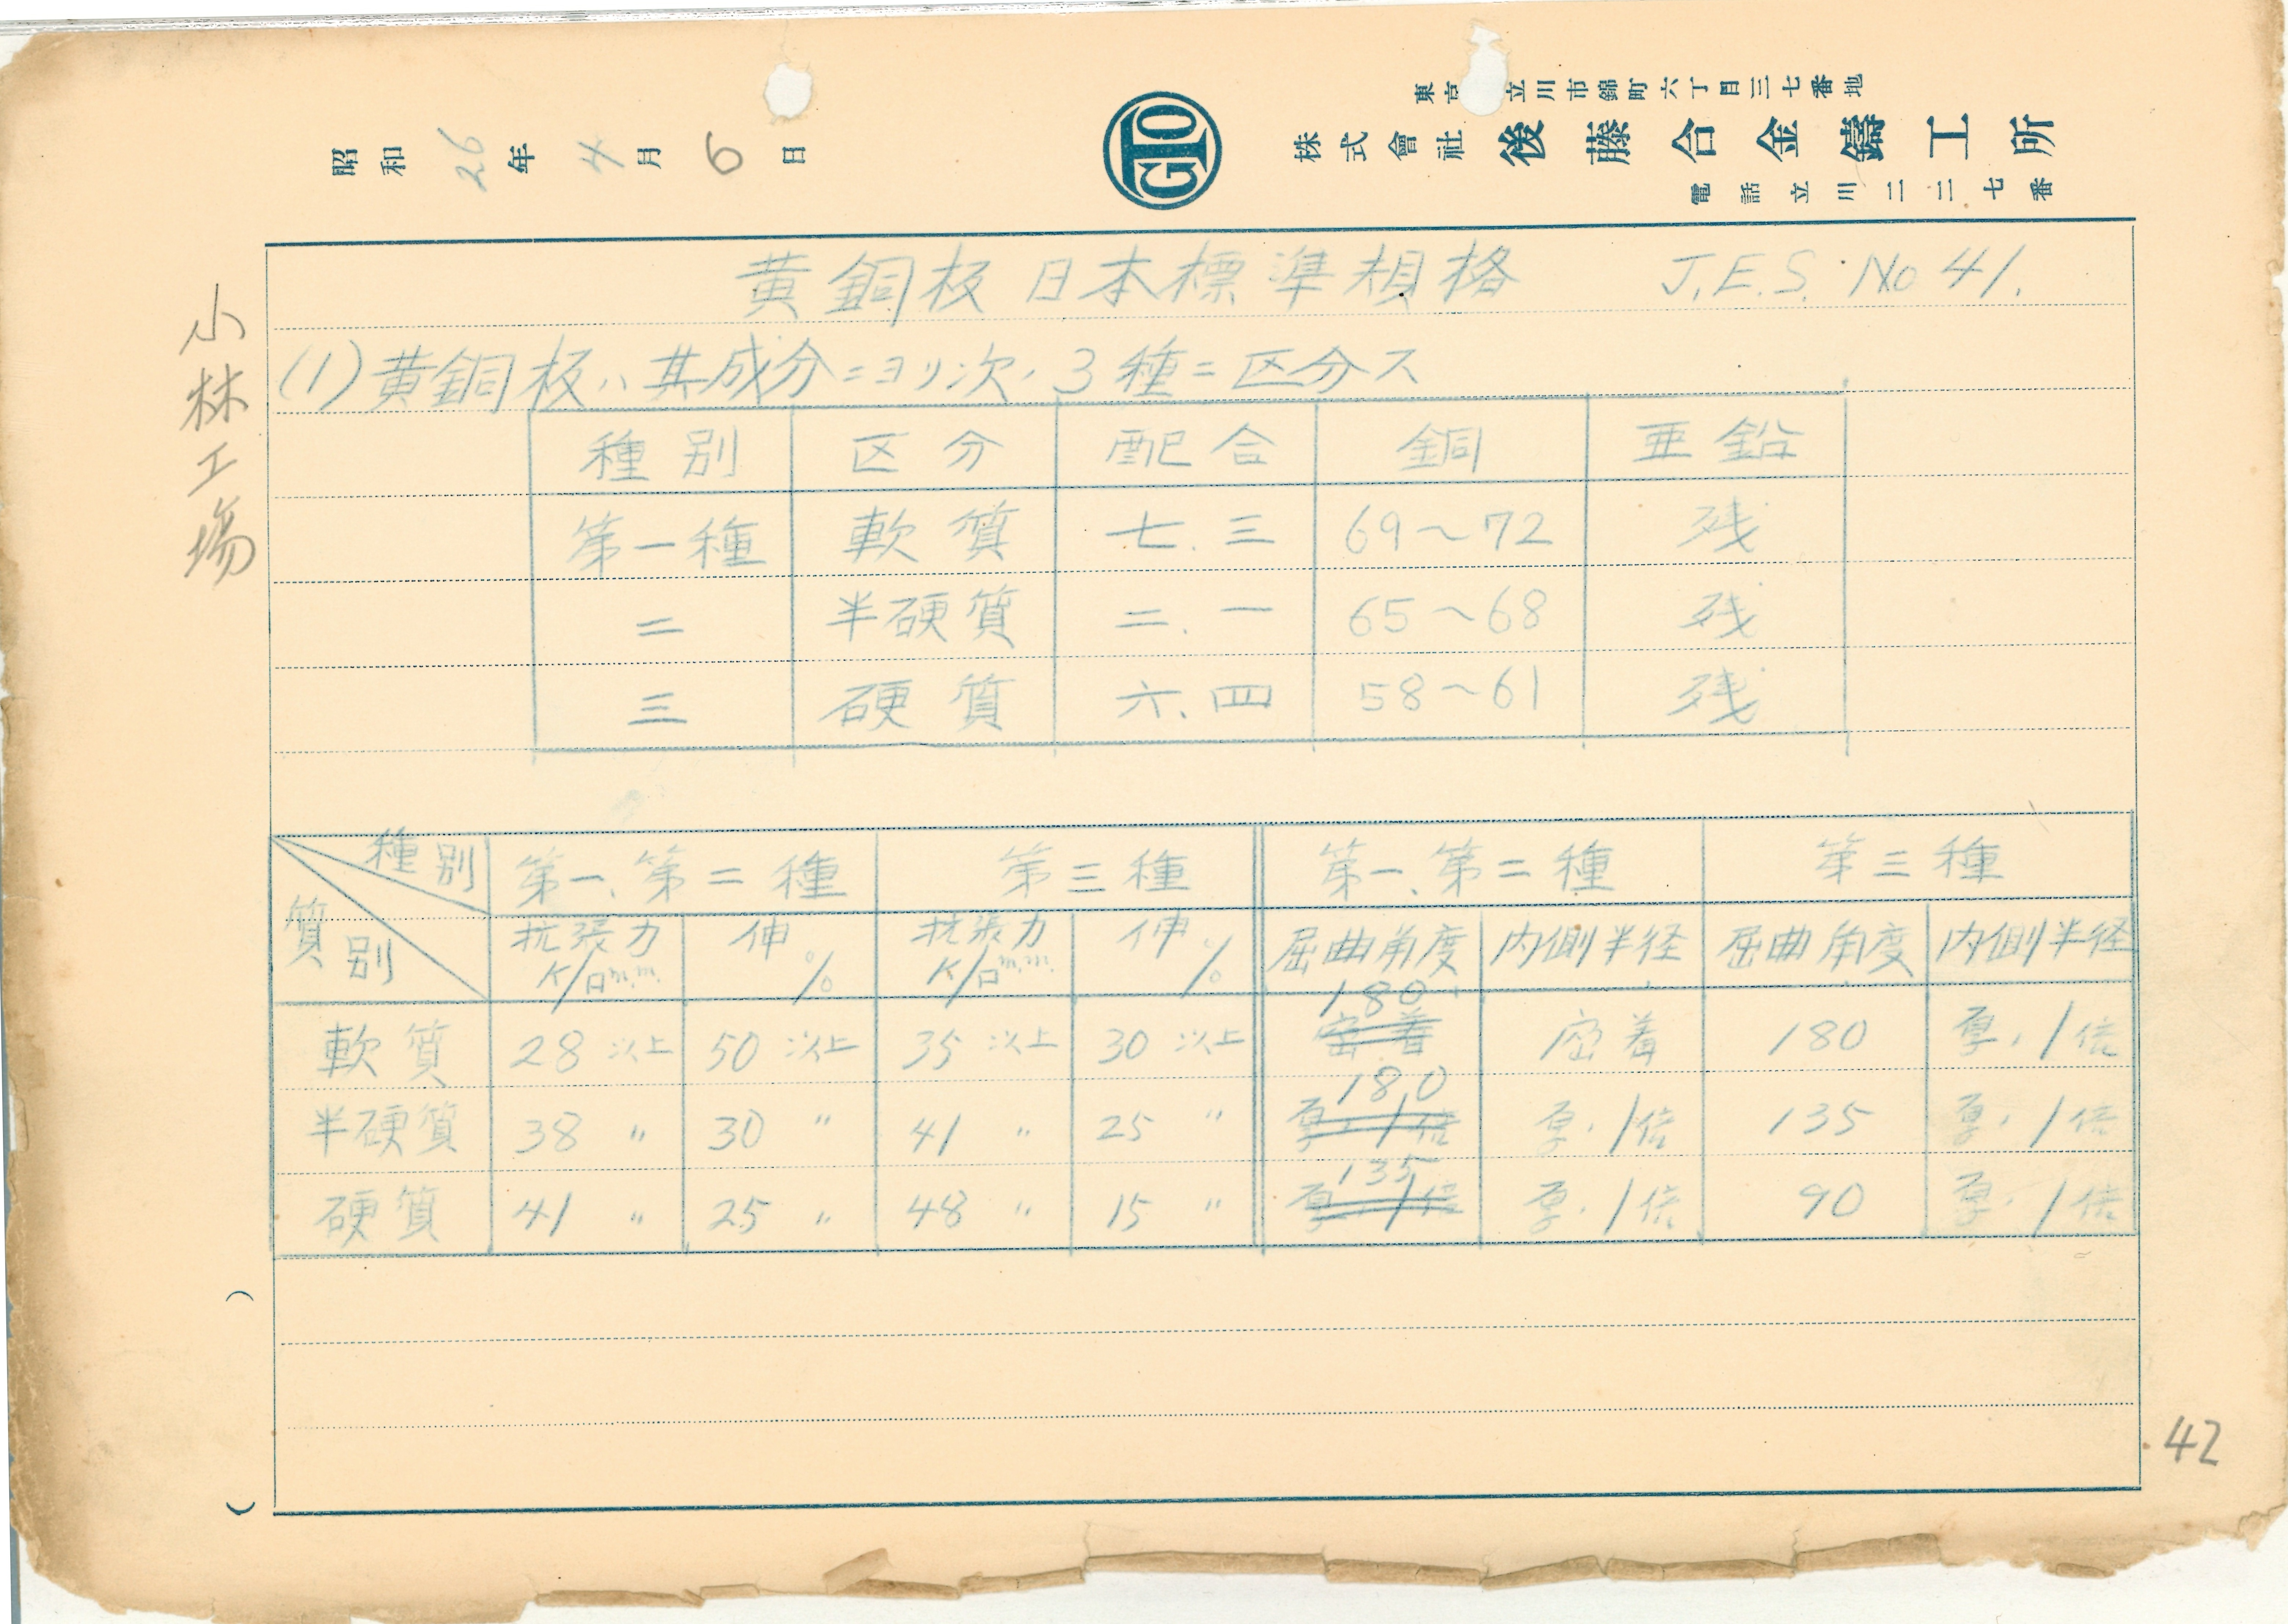 東京 立川市錦町六丁目三七番地
株式會社 後藤合金鑄工所
電話立川二二七番
GTO
昭和 26 年 4 月 6 日
小林工場
黄銅板日本標準規格 J.E.S. No 41.
(1) 黄銅板ハ其成分ニヨリ次ノ3種ニ区分ス
種別 区分 配合 銅 亜鉛
第一種 軟質 七.三 69～72 残
二 半硬質 二.一 65～68 残
三 硬質 六.四 58～61 残
種別 第一、第二種 第三種 第一、第二種 第三種
質別 抗張力 K/□m.m. 伸 % 抗張力 K/□m.m. 伸 % 屈曲角度 内側半径 屈曲角度 内側半径
軟質 28 以上 50 以上 35 以上 30 以上 密着 180 密着 180 厚ノ1倍
半硬質 38 〃 30 〃 41 〃 25 〃 厚ノ1倍 180 厚ノ1倍 135 厚ノ1倍
硬質 41 〃 25 〃 48 〃 15 〃 厚ノ1倍 135 厚ノ1倍 90 厚ノ1倍
42